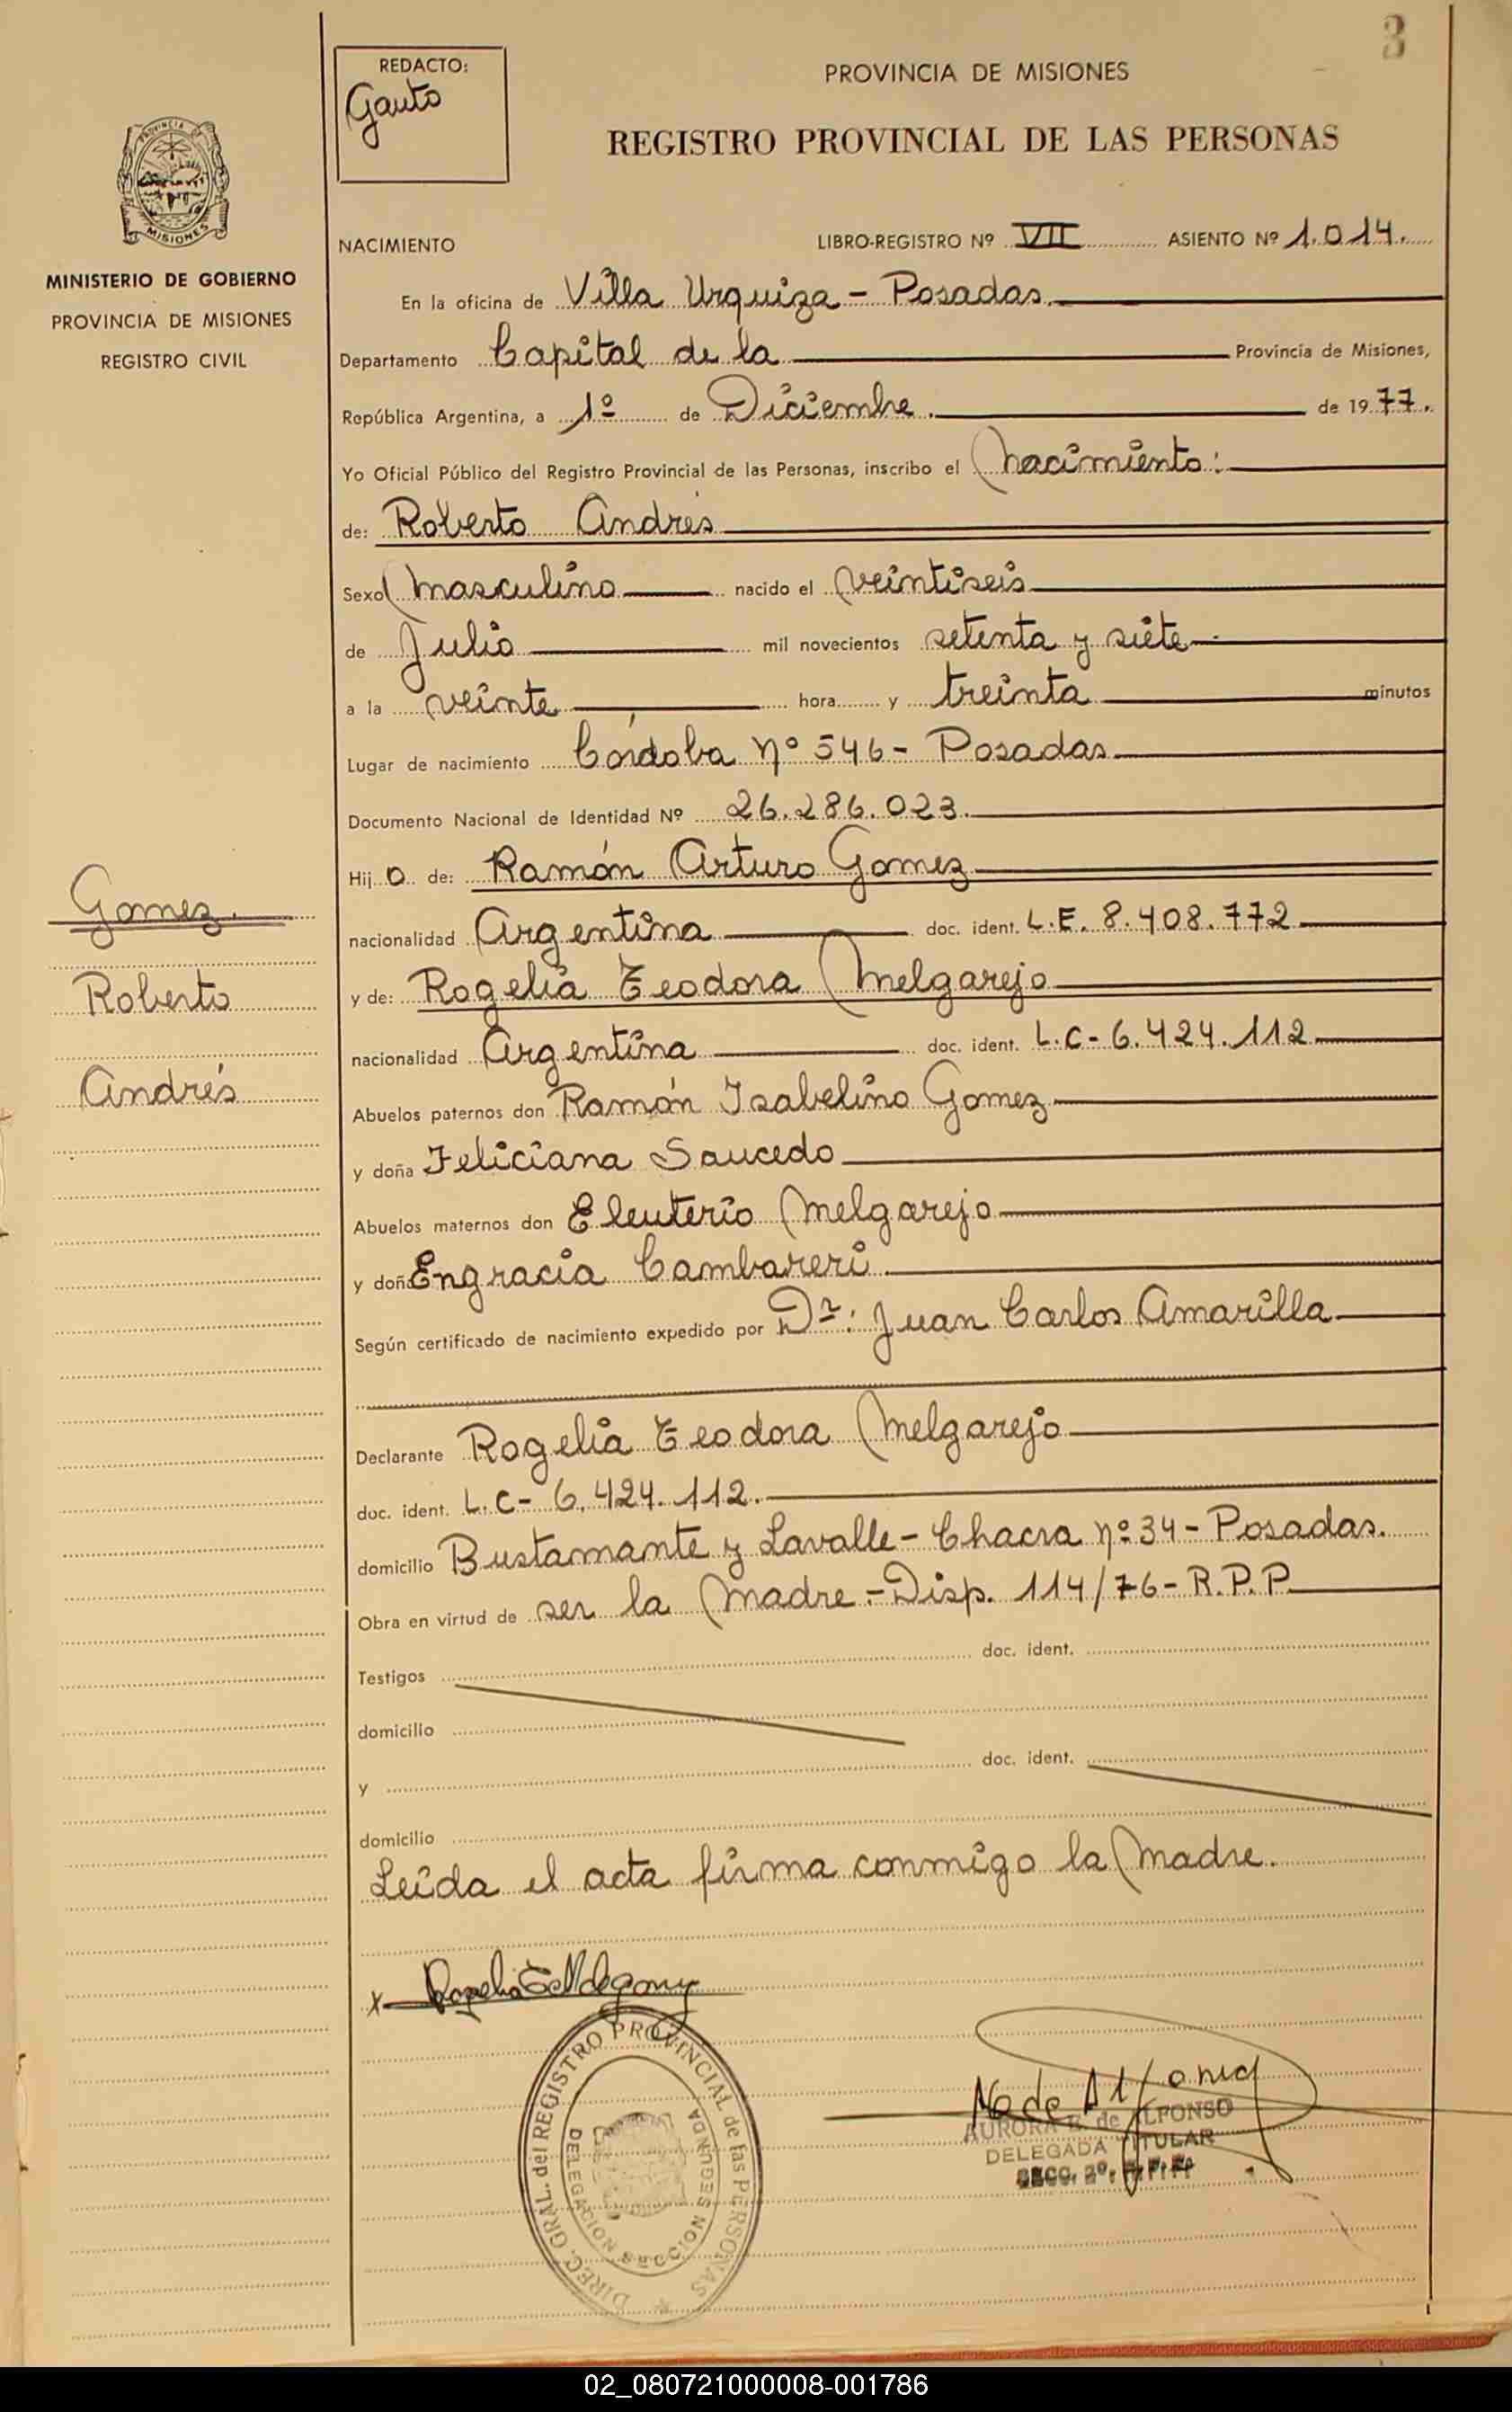 3
REDACTO:
Gauto
PROVINCIA DE MISIONES
REGISTRO PROVINCIAL DE LAS PERSONAS
PROVINCIA DE
MISIONES
MINISTERIO DE GOBIERNO
PROVINCIA DE MISIONES
REGISTRO CIVIL
NACIMIENTO LIBRO-REGISTRO Nº VII ASIENTO Nº 1.014.
En la oficina de Villa Urquiza - Posadas.
Departamento Capital de la Provincia de Misiones,
República Argentina, a 1º de Diciembre. de 1977.
Yo Oficial Público del Registro Provincial de las Personas, inscribo el Nacimiento:
de: Roberto Andrés
Sexo Masculino nacido el veintiseis
de Julio mil novecientos setenta y siete
a la veinte hora y treinta minutos
Lugar de nacimiento Córdoba Nº 546 - Posadas
Documento Nacional de Identidad Nº 26.286.023.
Hijo de: Ramón Arturo Gomez
nacionalidad Argentina doc. ident. L.E. 8.408.772
y de: Rogelia Teodora Melgarejo
nacionalidad Argentina doc. ident. L.C- 6.424.112
Abuelos paternos don Ramón Isabelino Gomez
y doña Feliciana Saucedo
Abuelos maternos don Eleuterio Melgarejo
y doña Engracia Cambareri
Según certificado de nacimiento expedido por Dr: Juan Carlos Amarilla
Declarante Rogelia Teodora Melgarejo
doc. ident. L.C- 6.424.112.
domicilio Bustamante y Lavalle - Chacra nº 34 - Posadas.
Obra en virtud de ser la Madre.- Disp. 114/76 - R.P.P
Testigos doc. ident.
domicilio
y doc. ident.
domicilio
Leída el acta firma conmigo la Madre.
Gomez.
Roberto
Andrés
x
DIREC. GRAL. del REGISTRO PROVINCIAL de las PERSONAS
DELEGACION SECCION SEGUNDA
AURORA B. de ALFONSO
DELEGADA TITULAR
SECC. 2º.
02_080721000008-001786